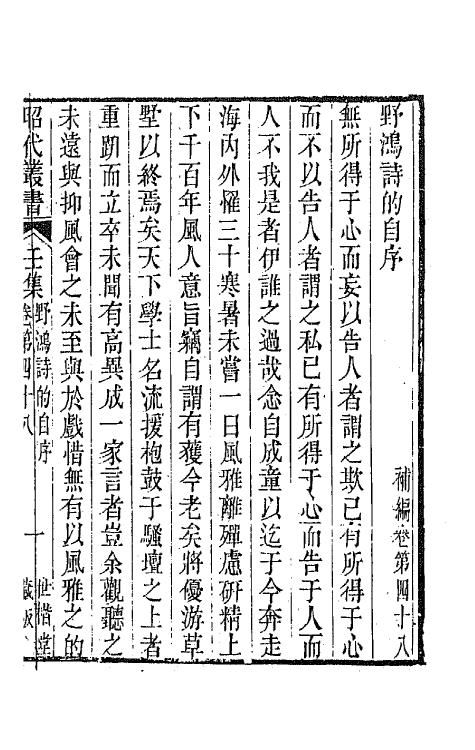 野鴻詩的自序
補編卷第四十八
無所得于心而妄以告人者謂之欺已有所得于心
而不以告人者謂之私已有所得于心而告于人而
人不我是者伊誰之過哉念自成童以迄于今奔走
海內外懼三十寒暑未嘗一日風雅離殫慮研精上
下千百年風人意旨竊自謂有獲今老矣將優游草
墅以終焉矣天下學士名流援枹鼓于騷壇之上者
重趼而立卒未聞有高異成一家言者豈余觀聽之
未遠與抑風會之未至與於戲惜無有以風雅之的
昭代叢書
壬集卷第四十八
野鴻詩的自序
一
世楷堂
藏板